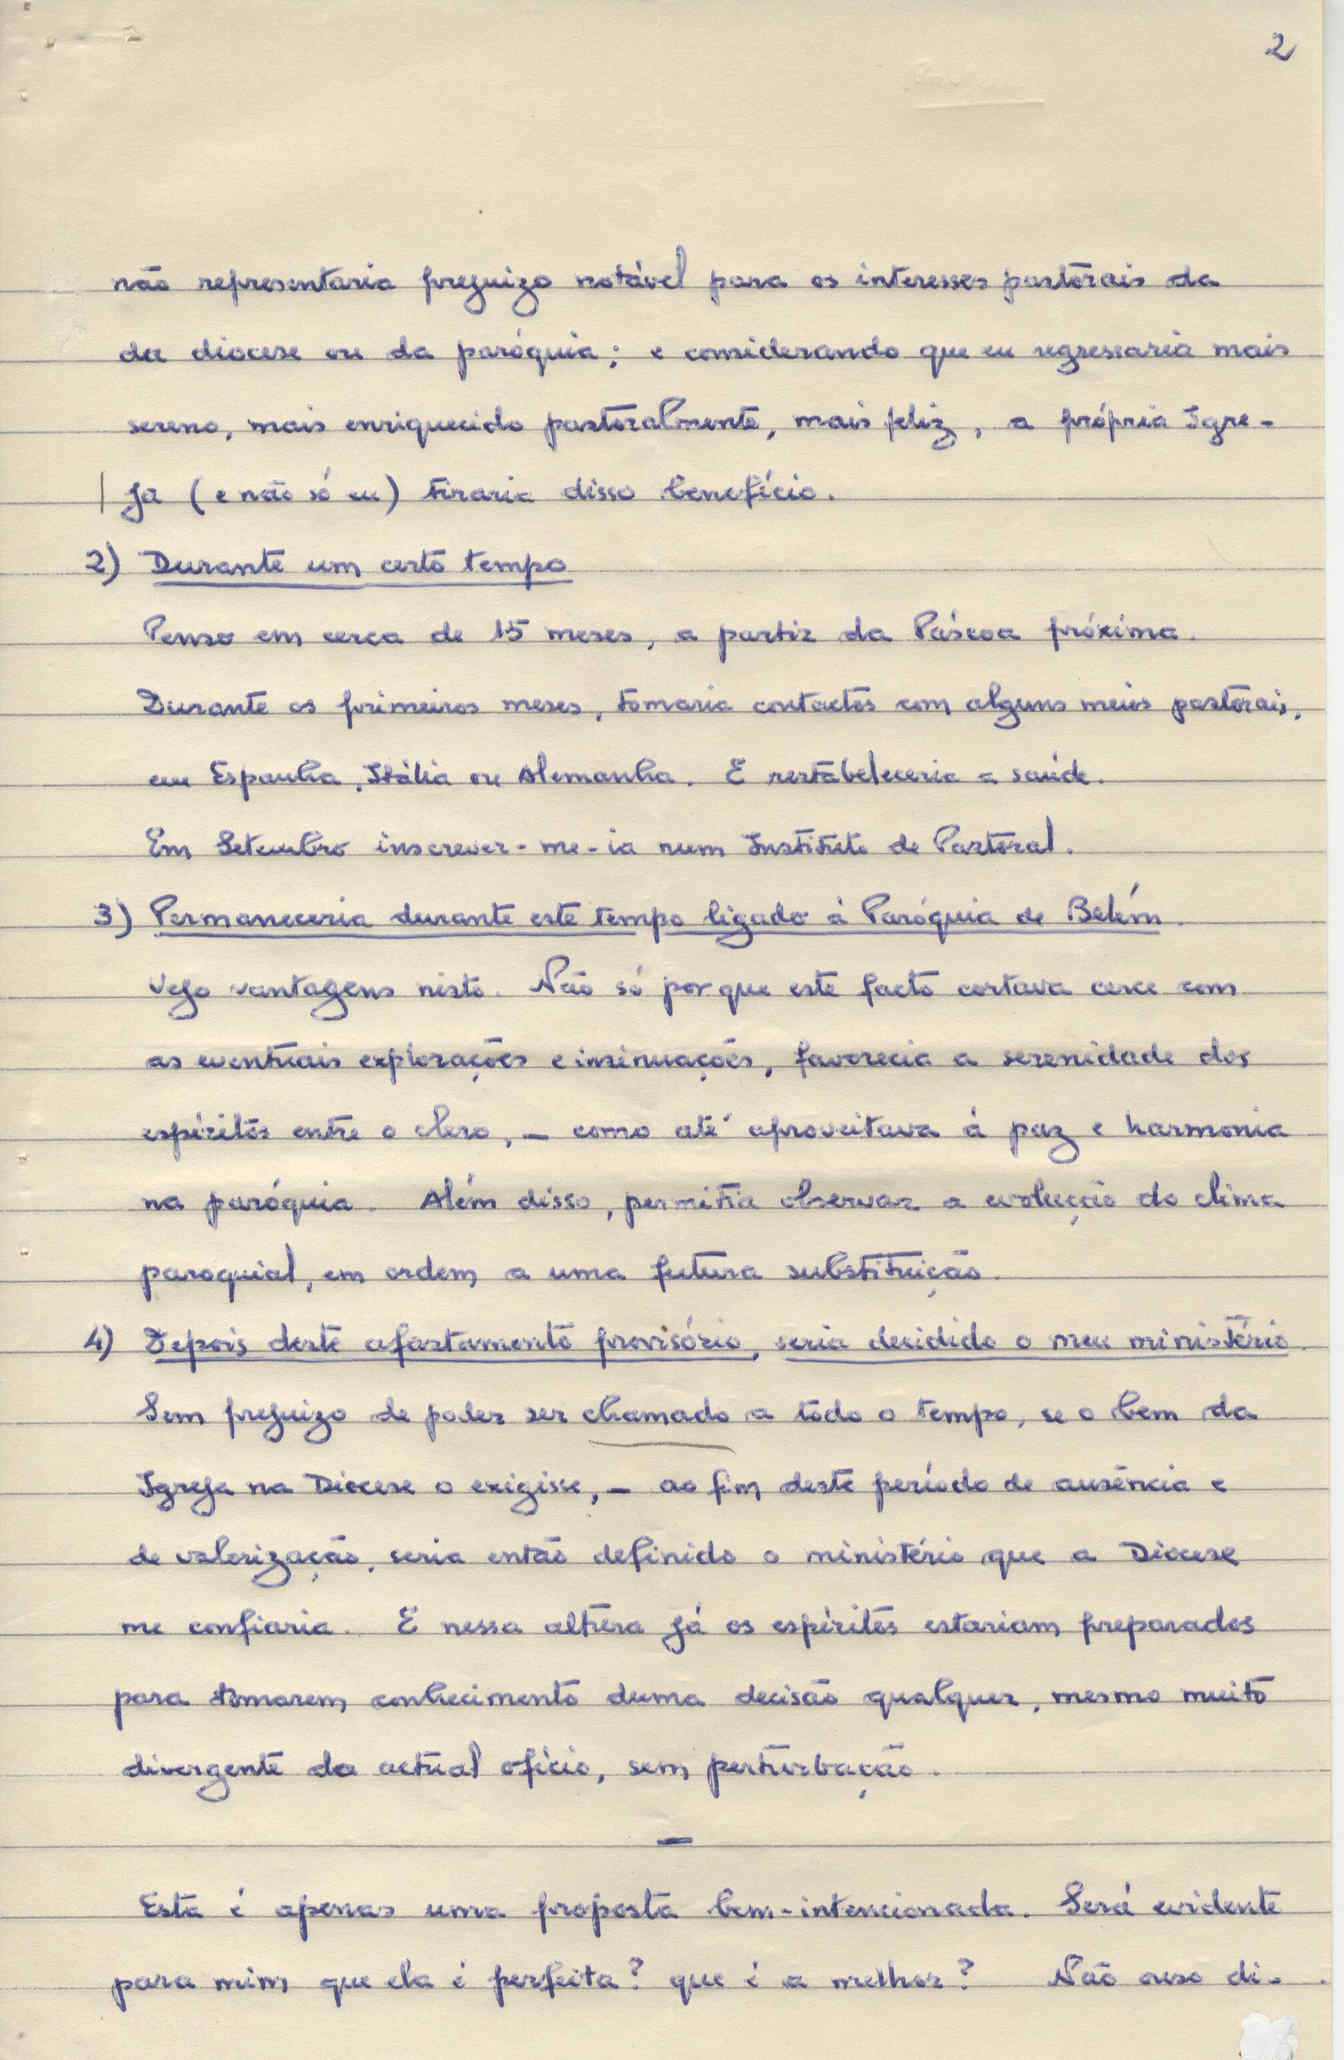 2
não representaria prejuizo notável para os interesses pastorais da
da diocese ou da paróquia; e considerando que eu regressaria mais
sereno, mais enriquecido pastoralmente, mais feliz, a própria Igre-
ja (e não só eu) tiraria disso benefício.
2) Durante um certo tempo
Penso em cerca de 15 meses, a partir da Páscoa próxima.
Durante os primeiros meses, tomaria contactos com alguns meios pastorais,
em Espanha, Itália ou Alemanha. E restabeleceria a saúde.
Em Setembro inscrever-me-ia num Instituto de Pastoral.
3) Permaneceria durante este tempo ligado à Paróquia de Belém.
Vejo vantagens nisto. Não só porque este facto cortava cerce com
as eventuais explorações e insinuações, favorecia a serenidade dos
espíritos entre o clero, - como até aproveitava à paz e harmonia
na paróquia. Além disso, permitia observar a evolução do clima
paroquial, em ordem a uma futura substituição.
4) Depois deste afastamento provisório, seria decidido o meu ministério.
Sem prejuizo de poder ser chamado a todo o tempo, se o bem da
Igreja na Diocese o exigisse, - ao fim deste período de ausência e
de valorização, seria então definido o ministério que a Diocese
me confiaria. E nessa altura já os espíritos estariam preparados
para tomarem conhecimento duma decisão qualquer, mesmo muito
divergente da actual ofício, sem perturbação.
—
Esta é apenas uma proposta bem-intencionada. Será evidente
para mim que ela é perfeita? que é a melhor? Não ouso di-